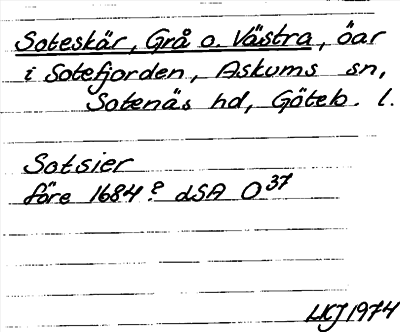 Soteskär, Grå o. Västra, öar
i Sotefjorden, Askums sn,
Sotenäs hd, Göteb. l.
Sotsier
före 1684? dSA O37
LKJ 1974